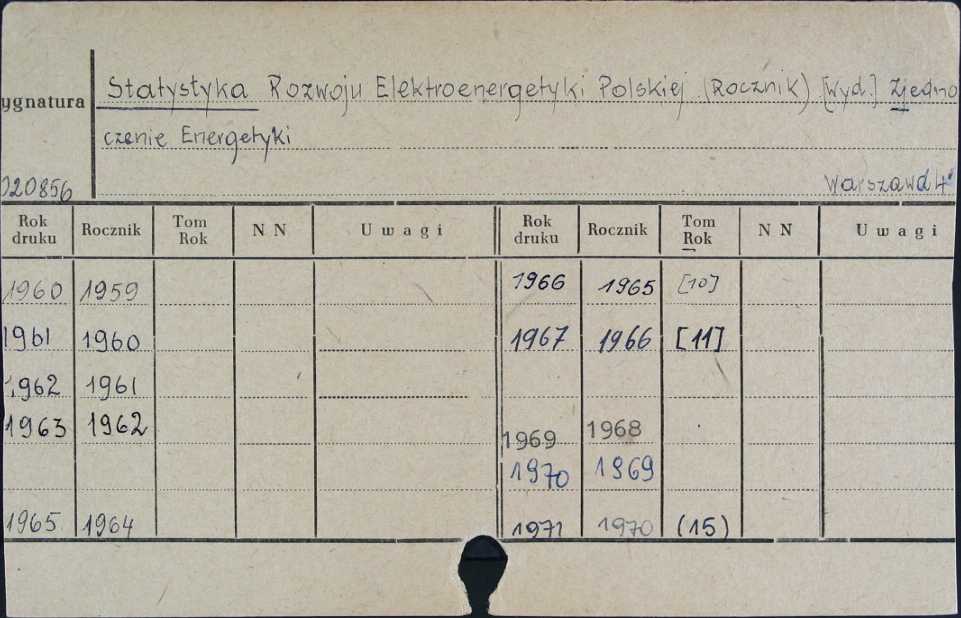 Statystyka Rozwoju Elektroenergetyki Polskiej (Rocznik) [Wyd.] Zjedno
ygnatura
czenie Energetyki
020856 Warszawa
Rok druku Rocznik Tom Rok N N Uwagi Rok druku Rocznik Tom Rok N N Uwagi
1960 1959 1966 1965 [10]
1961 1960 1967 1966 [11]
1962 1961
1963 1962 1969 1968
1970 1969
1965 1964 1971 1970 (15)